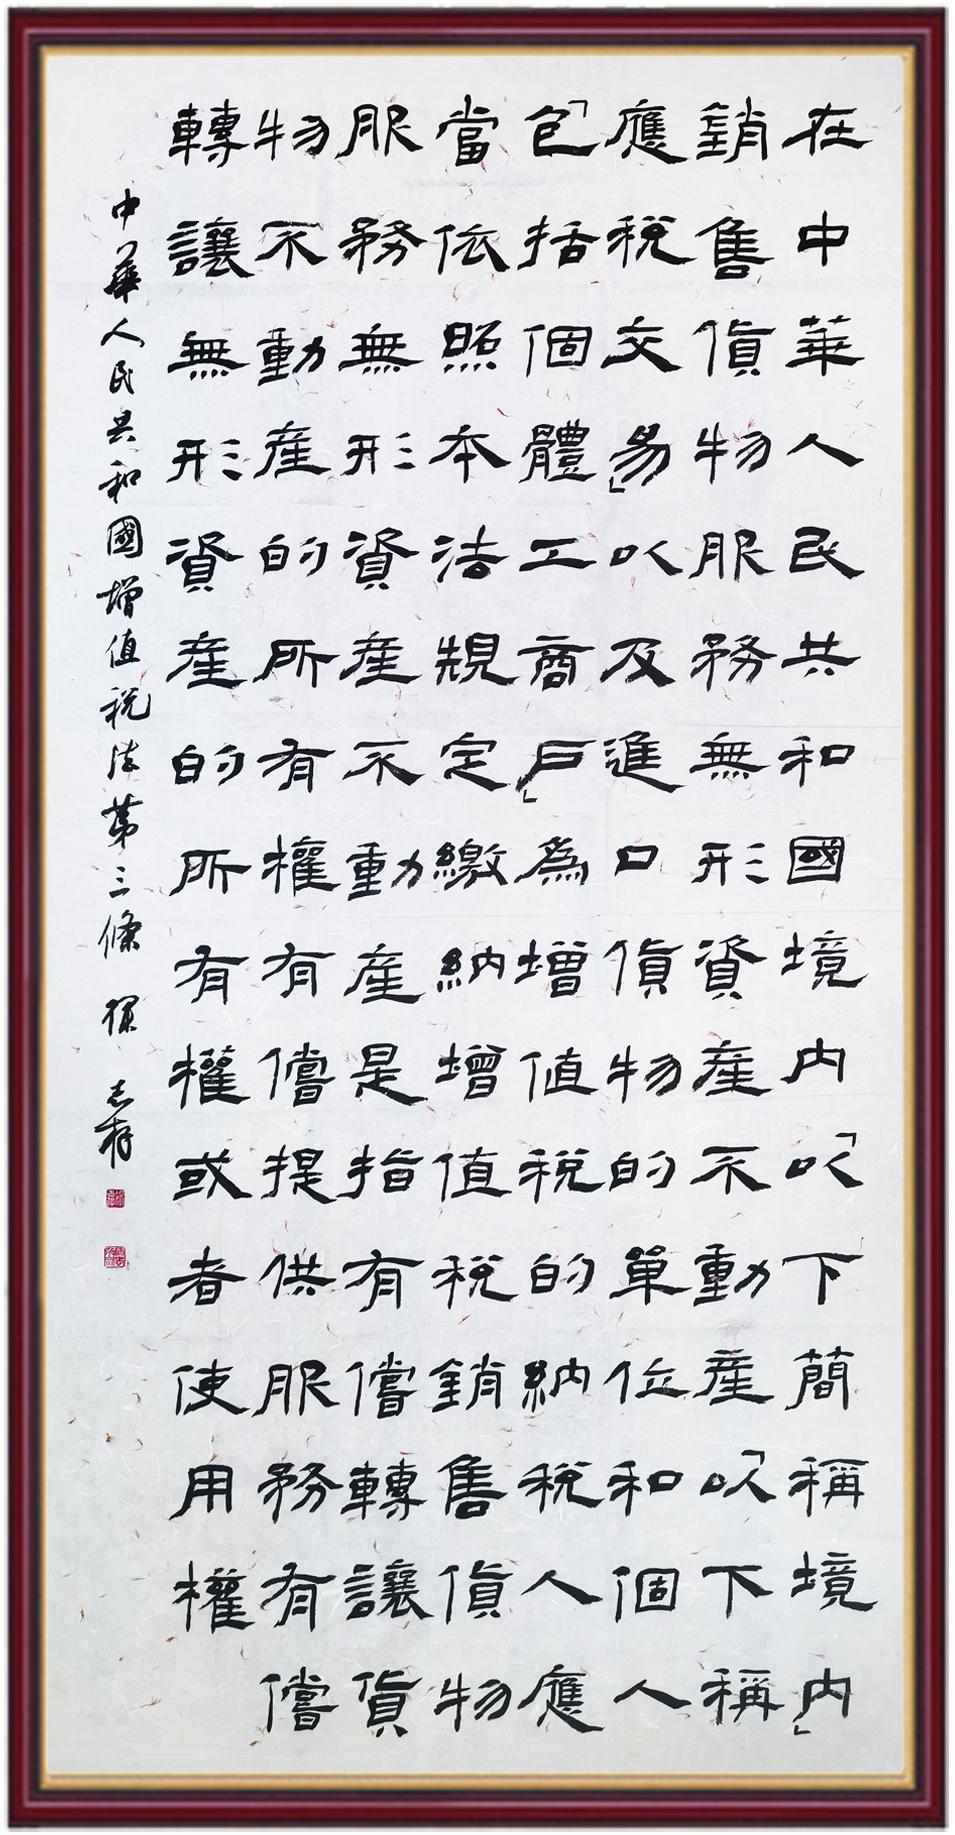 在中華人民共和國境内「以下簡稱境内」
銷售貨物服務無形資産不動産「以下稱
應税交易」以及進口貨物的單位和個人
「包括個體工商戶」爲增值税的納税人應
當依照本法規定繳納增值税銷售貨物
服務無形資産不動産是指有償轉讓貨
物不動産的所有權有償提供服務有償
轉讓無形資産的所有權或者使用權
中華人民共和國增值税法第三條 志祥